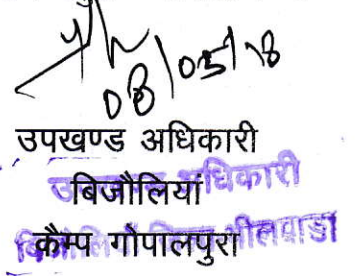 08/05/18
उपखण्ड अधिकारी
उपखण्ड अधिकारी
बिजौलियां
बिजौलियां जिला भीलवाडा
कैम्प गोपालपुरा